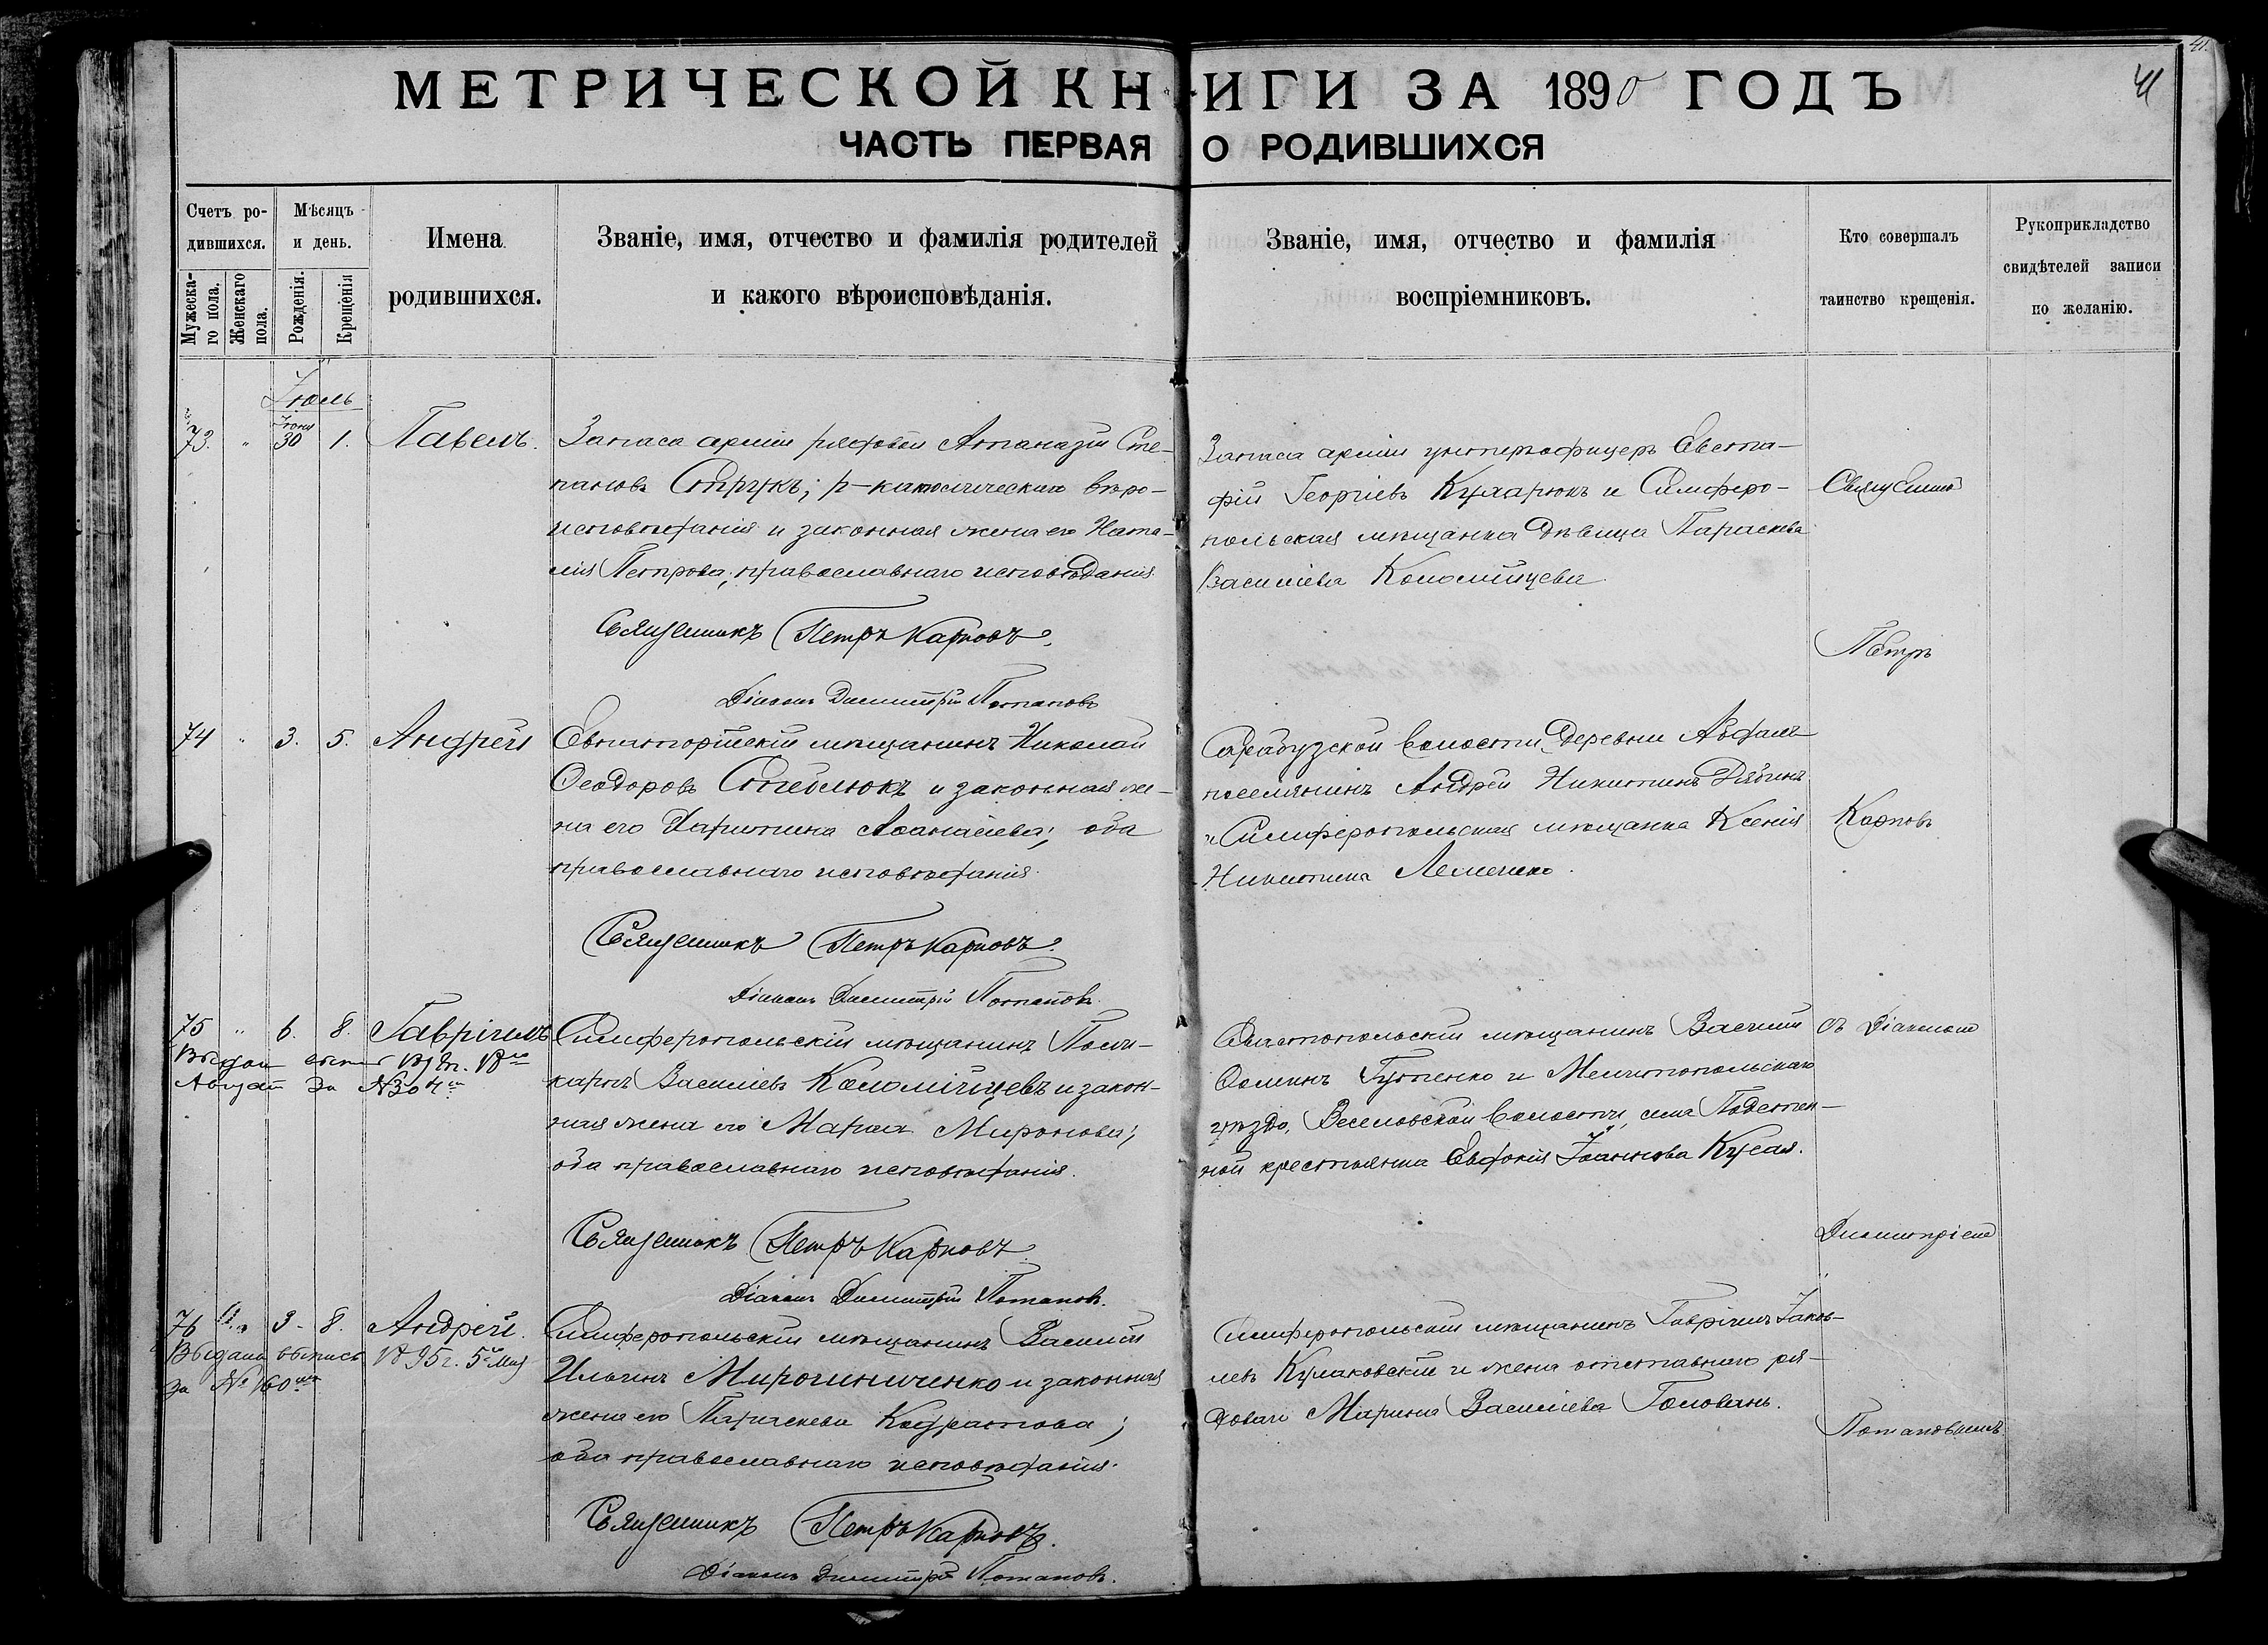 МЕТРИЧЕСКОЙ КНИГИ ЗА 1890 ГОДЪ
41
41.
ЧАСТЬ ПЕРВАЯ О РОДИВШИХСЯ
Счетъ ро-
дившихся.
Мужеска-
го пола.
Женскаго
пола.
Мѣсяцъ
и день.
Рожденія.
Крещенія
Имена
родившихся.
Званіе, имя, отчество и фамилія родителей
и какого вѣроисповѣданія.
Званіе, имя, отчество и фамилія
воспріемниковъ.
Кто совершалъ
таинство крещенія.
Рукоприкладство
свидѣтелей записи
по желанію.
Іюль
73. " Іюня 30 1. Павелъ.
Запаса арміи рядовой Атаназій Сте-
пановъ Струкъ; р-католическаго вѣро-
исповѣданія и законная жена его Ната-
лія Петрова; православнаго исповѣданія.
Священникъ Петръ Карповъ.
Діаконъ Димитрій Потаповъ
Запаса арміи унтеръ-офицеръ Евста-
фій Георгіевъ Кухарюкъ и Симферо-
польская мѣщанка дѣвица Параскева
Василіева Коломійцева.
74 " 3. 5. Андрей
Евпаторійскій мѣщанинъ Николай
Ѳеодоровъ Стеблюкъ и законная же-
на его Харитина Аѳанасіева; оба
православнаго исповѣданія.
Священникъ Петръ Карповъ.
Діаконъ Димитрій Потаповъ.
Сарабузской волости, деревни
поселянинъ Андрей Никитинъ
и Симферопольская мѣщанка Ксенія
Никитина
75 " 6. 8. Гавріилъ
Августа за № 304
Симферопольскій мѣщанинъ Поли-
карпъ Василіевъ Коломійцевъ и закон-
ная жена его Марѳа Миронова;
оба православнаго исповѣданія.
Священникъ Петръ Карповъ
Діаконъ Димитрій Потаповъ.
Севастопольскій мѣщанинъ Василій
Ѳоминъ и Мелитопольскаго
уѣзда, Веселовской волости, села
крестьянка Евдокія Іоаннова
76 " 3. 8. Андрей.
Выдана выпись 1895 г. 5 Мая
за № 160
Симферопольскій мѣщанинъ Василій
Ильинъ Мирошниченко и законная
жена его Параскева Кодратова;
оба православнаго исповѣданія.
Священникъ Петръ Карповъ.
Діаконъ Димитрій Потаповъ.
Симферопольскій мѣщанинъ Гавріилъ Іаков-
левъ Кулаковскій и жена отставнаго ря-
доваго Марина Василіева Головань.
Священникъ
Петръ
Карповъ
съ Діакономъ
Димитріемъ
Потаповымъ